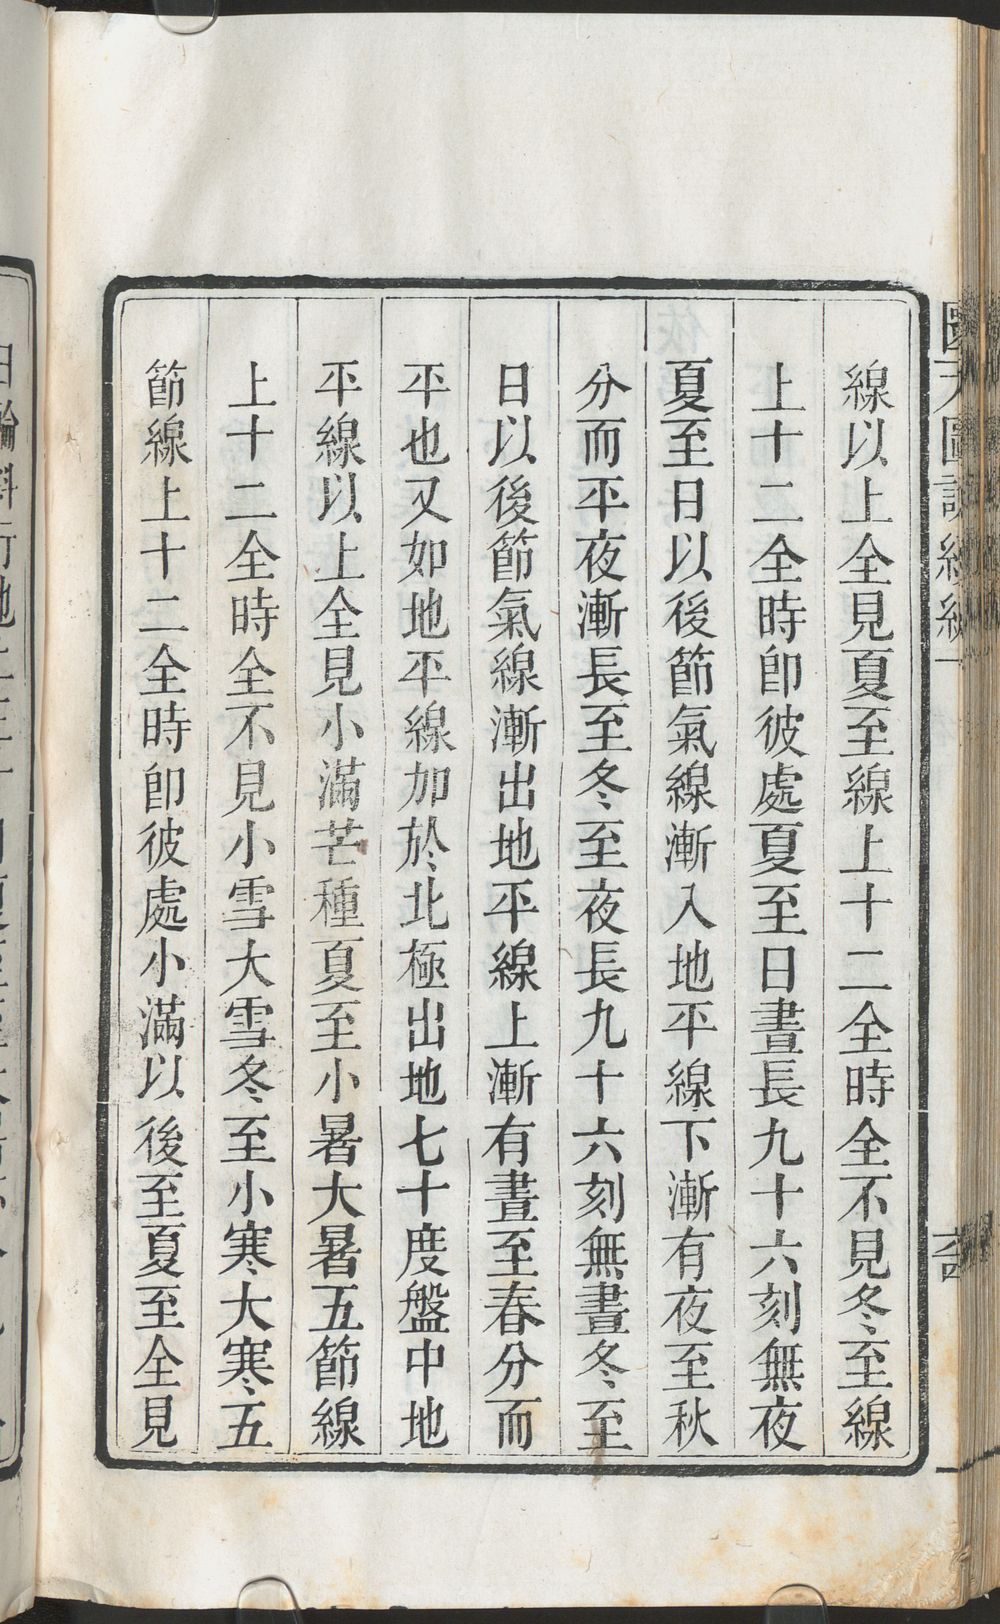 線以上全見夏至線上十二全時全不見冬至線
上十二全時卽彼處夏至日晝長九十六刻無夜
夏至日以後節氣線漸入地平線下漸有夜至秋
分而平夜漸長至冬至夜長九十六刻無晝冬至
日以後節氣線漸出地平線上漸有晝至春分而
平也又如地平線加於北極出地七十度盤中地
平線以上全見小滿芒種夏至小暑大暑五節線
上十二全時全不見小雪大雪冬至小寒大寒五
節線上十二全時卽彼處小滿以後至夏至全見